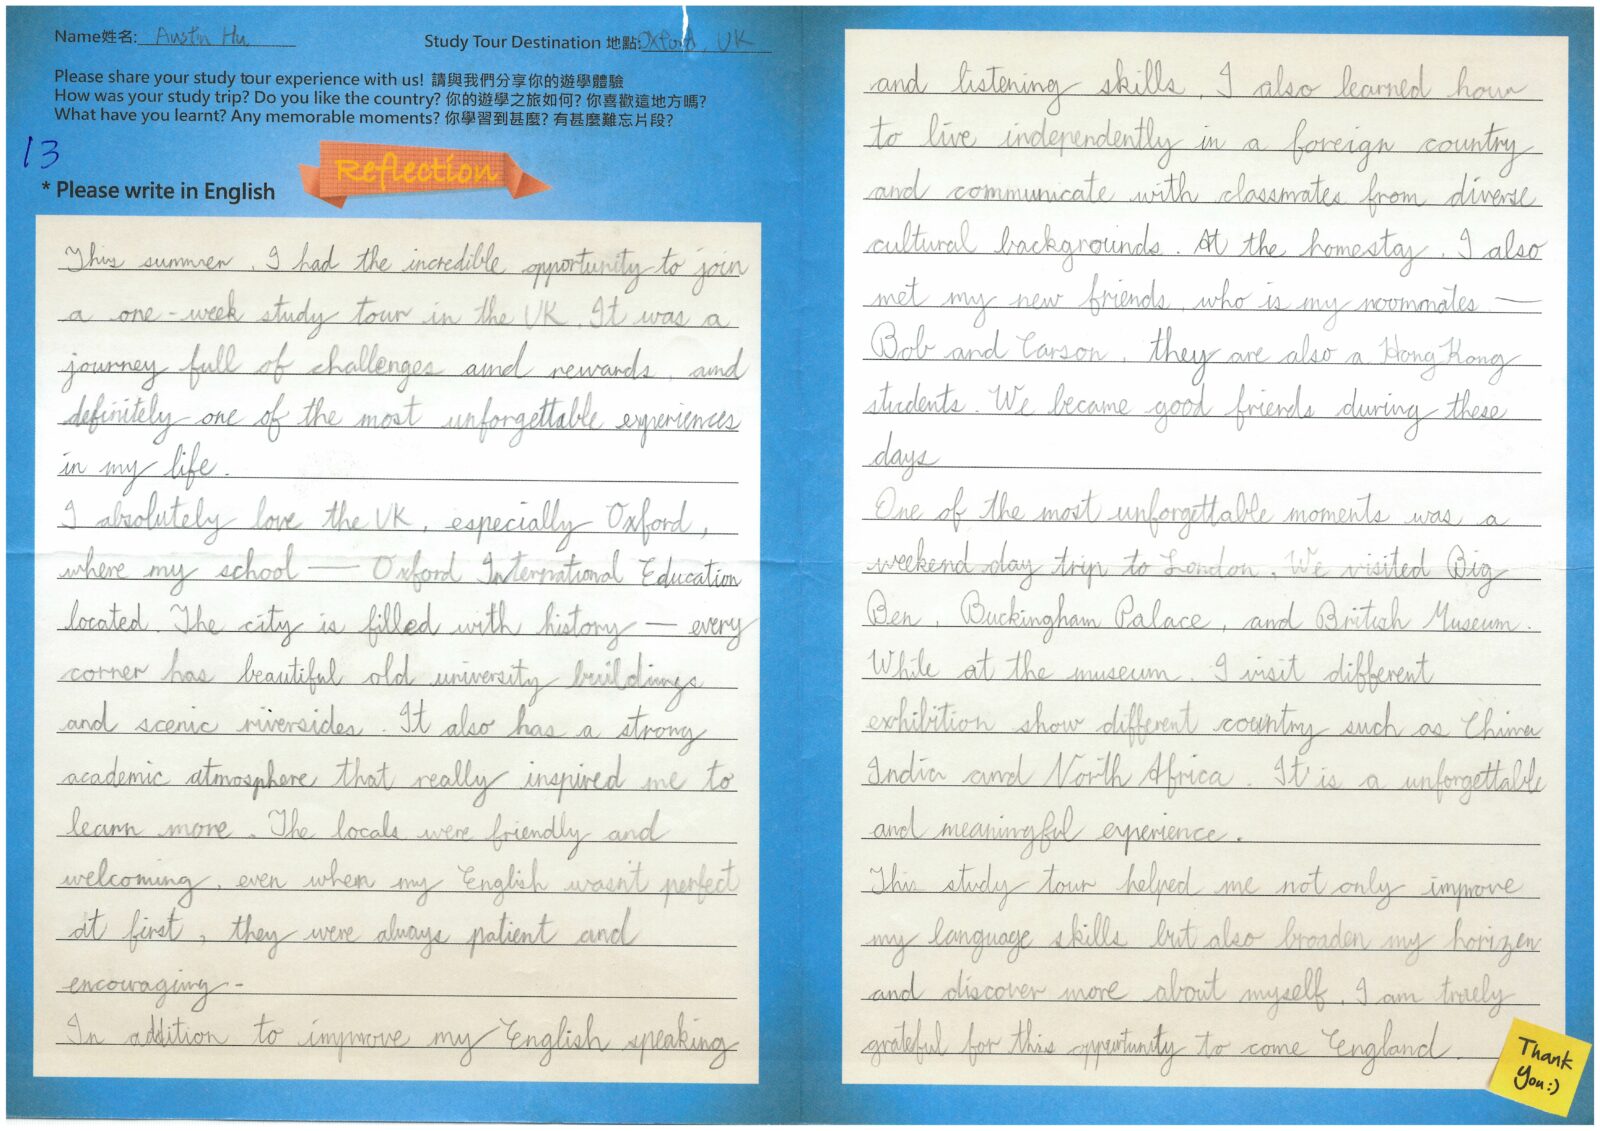 Name姓名: Austin Hu
Study Tour Destination 地點: Oxford, UK
Please share your study tour experience with us! 請與我們分享你的遊學體驗
How was your study trip? Do you like the country? 你的遊學之旅如何? 你喜歡這地方嗎?
What have you learnt? Any memorable moments? 你學習到甚麼? 有甚麼難忘片段?
13
Reflection
* Please write in English
This summer, I had the incredible opportunity to join
a one-week study tour in the UK. It was a
journey full of challenges and rewards, and
definitely one of the most unforgettable experiences
in my life.
I absolutely love the UK, especially Oxford,
where my school — Oxford International Education
located. The city is filled with history — every
corner has beautiful old university buildings
and scenic riversides. It also has a strong
academic atmosphere that really inspired me to
learn more. The locals were friendly and
welcoming, even when my English wasn't perfect
at first, they were always patient and
encouraging.
In addition to improve my English speaking
and listening skills, I also learned how
to live independently in a foreign country
and communicate with classmates from diverse
cultural backgrounds. At the homestay, I also
met my new friends, who is my roommates —
Bob and Carson, they are also a Hong Kong
students. We became good friends during these
days
One of the most unforgettable moments was a
weekend day trip to London. We visited Big
Ben, Buckingham Palace, and British Museum.
While at the museum, I visit different
exhibition show different country such as China
India and North Africa. It is a unforgettable
and meaningful experience.
This study tour helped me not only improve
my language skills but also broaden my horizen
and discover more about myself. I am truely
grateful for this opportunity to come England.
Thank
You:)